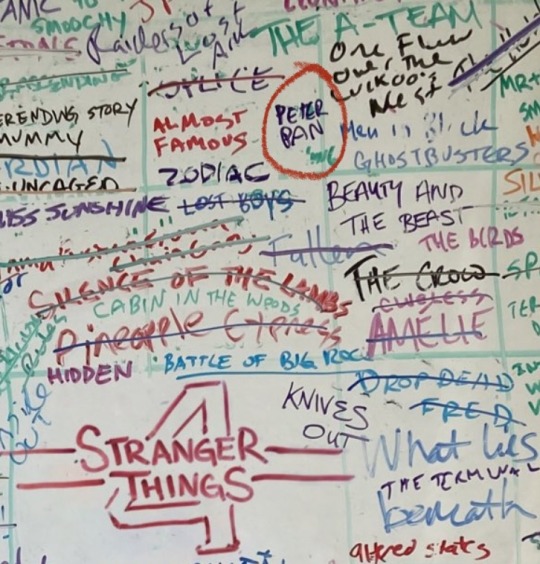 SMOOCHY
Raiders of
Lost
Ark
THE A-TEAM
One Flew
Over the
Cuckoos
Nest
SPLICE
ERENDING STORY
MUMMY
ALMOST
FAMOUS
PETER
PAN
Men in Black
GHOSTBUSTERS
RDIAN
UNCAGED
ZODIAC
MISS SUNSHINE
LOST BOYS
BEAUTY AND
THE BEAST
THE BIRDS
Fallen
SILENCE OF THE LAMBS
THE CROW
CABIN IN THE WOODS
CLUELESS
AMELIE
Pineapple Express
HIDDEN
BATTLE OF BIG ROCK
DROP DEAD
FRED
KNIVES
OUT
4
STRANGER
THINGS
What lies
THE TERMINAL
beneath
altered states